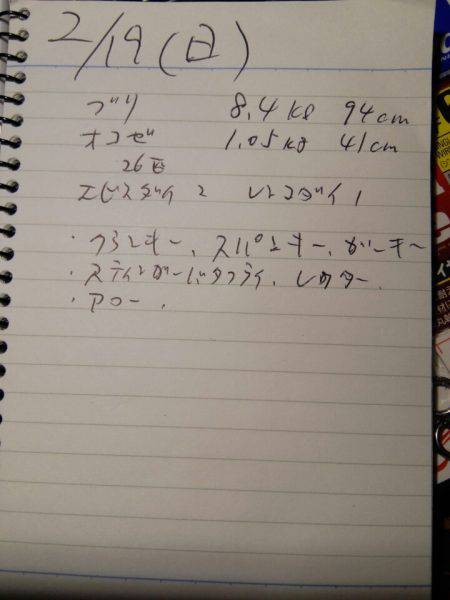 2/19(日)
ブリ 8.4kg 94cm
オコゼ 1.05kg 41cm
26匹
エビスダイ 2 レンコダイ 1
・フランキー、スパンキー、ガーキー
・スティンガーバタフライ、レクター、
・アロー、